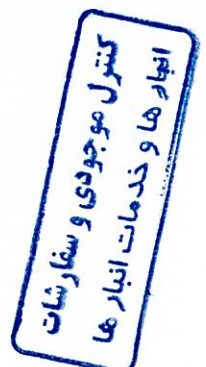 کنترل موجودی و سفارشات
انبار ها و خدمات انبار ها